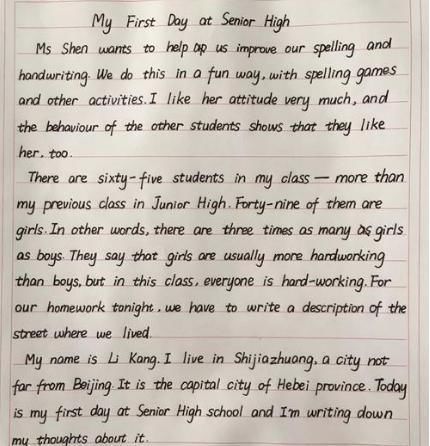 My First Day at Senior High
Ms Shen wants to help us improve our spelling and
handwriting. We do this in a fun way, with spelling games
and other activities. I like her attitude very much, and
the behaviour of the other students shows that they like
her, too.
There are sixty-five students in my class — more than
my previous class in Junior High. Forty-nine of them are
girls. In other words, there are three times as many as girls
as boys. They say that girls are usually more hardworking
than boys, but in this class, everyone is hard-working. For
our homework tonight, we have to write a description of the
street where we lived.
My name is Li Kang. I live in Shijiazhuang, a city not
far from Beijing. It is the capital city of Hebei province. Today
is my first day at Senior High school and I'm writing down
my thoughts about it.